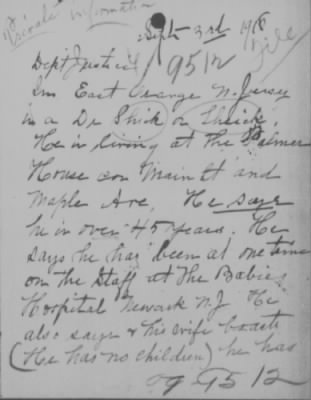 Private information
Sept 3rd 191
File
Dept Justice
9512
In East Orange N. Jersey
is a Dr Shick or Sheick.
He is living at the Palmer
House on Main St and
Maple Ave, He says
he is over 45 years. He
says he has been at one time
on the Staff at The Babies
Hospital Newark NJ He
also says & his wife boasts
(He has no children) he has
og 9512